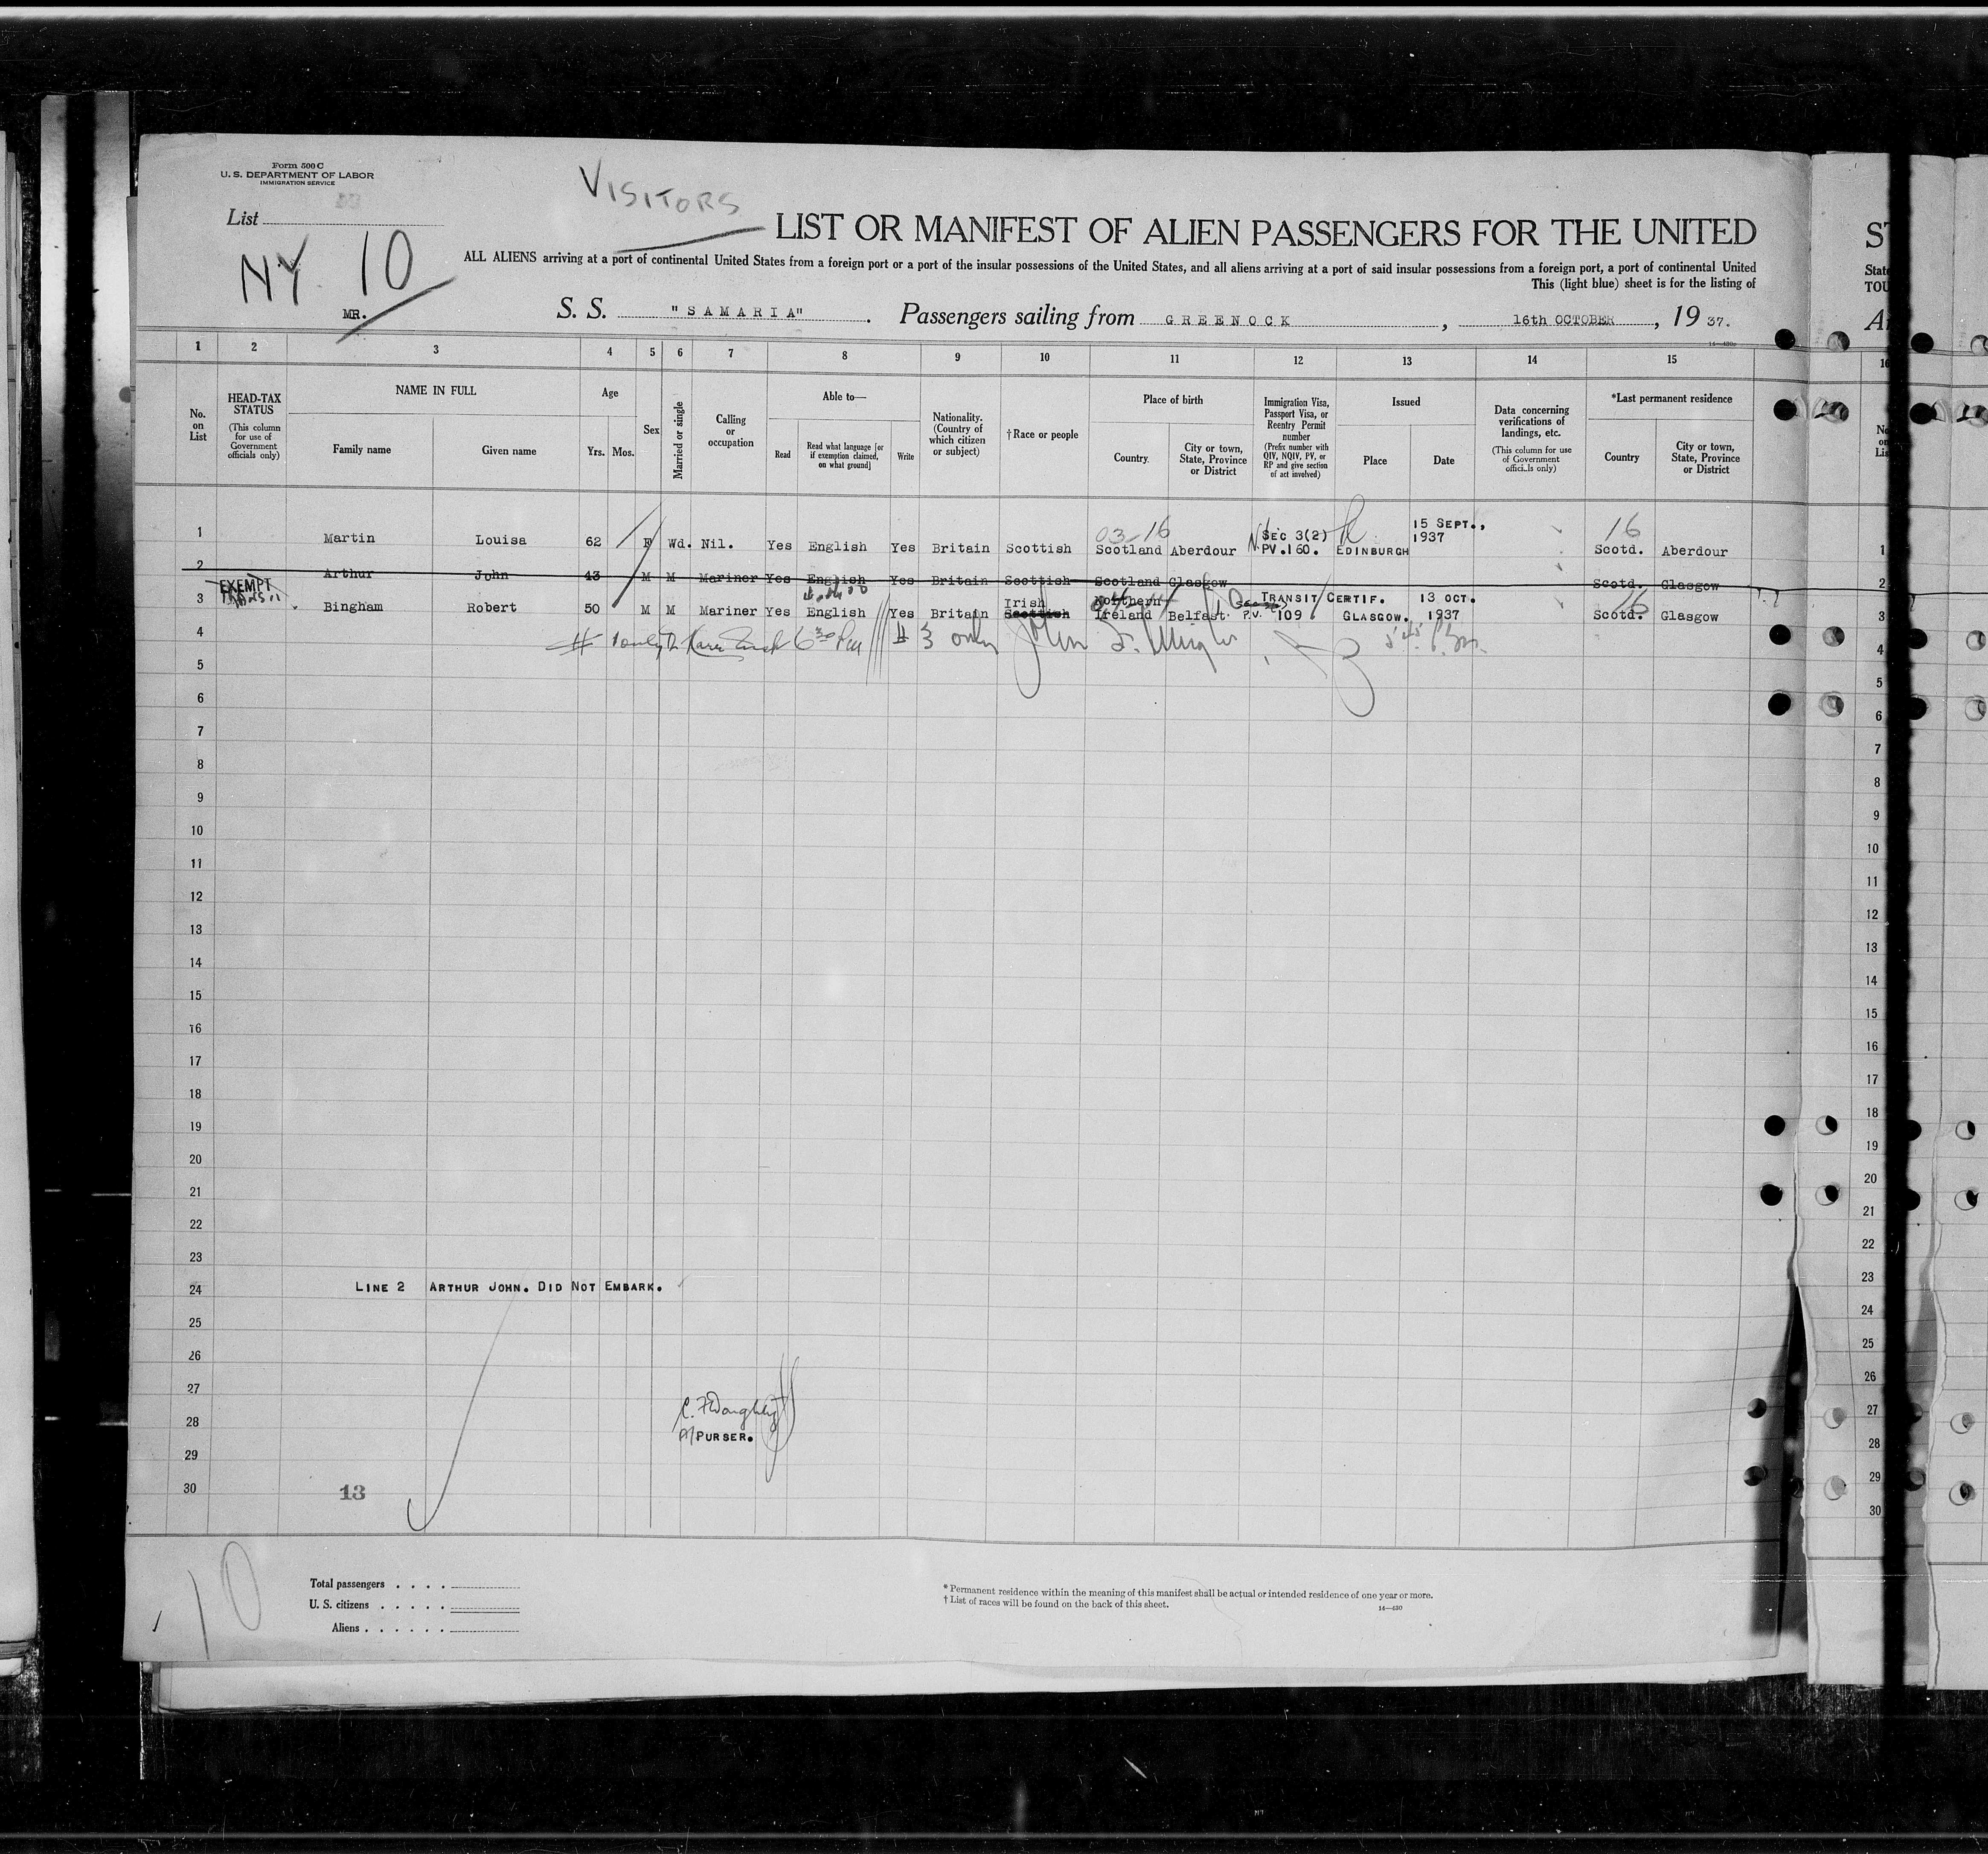 Form 500 C
U. S. DEPARTMENT OF LABOR
IMMIGRATION SERVICE
VISITORS
List
NY 10
LIST OR MANIFEST OF ALIEN PASSENGERS FOR THE UNITED
ALL ALIENS arriving at a port of continental United States from a foreign port or a port of the insular possessions of the United States, and all aliens arriving at a port of said insular possessions from a foreign port, a port of continental United
This (light blue) sheet is for the listing of
MR.
S. S. "SAMARIA". Passengers sailing from GREENOCK, 16th OCTOBER, 19 37.
1 2 3 4 5 6 7 8 9 10 11 12 13 14 15
No. on List
HEAD-TAX STATUS (This column for use of Government officials only)
NAME IN FULL
Family name
Given name
Age
Yrs. Mos.
Sex
Married or single
Calling or occupation
Able to—
Read
Read what language [or if exemption claimed, on what ground]
Write
Nationality. (Country of which citizen or subject)
†Race or people
Place of birth
Country.
City or town, State, Province or District
Immigration Visa, Passport Visa, or Reentry Permit number (Prefix number with QIV, NQIV, PV, or RP and give section of act involved)
Issued
Place
Date
Data concerning verifications of landings, etc. (This column for use of Government officials only)
*Last permanent residence
Country
City or town, State, Province or District
03-16 16
1 Martin Louisa 62 F Wd. Nil. Yes English Yes Britain Scottish Scotland Aberdour SEC 3(2) PV.160. EDINBURGH 15 SEPT., 1937 Scotd. Aberdour 1
2 Arthur John 43 M M Mariner Yes English Yes Britain Scottish Scotland Glasgow Scotd. Glasgow 2
EXEMPT
3 Bingham Robert 50 M M Mariner Yes English Yes Britain Irish Scottish Northern Ireland Belfast TRANSIT CERTIF. P.V. 109 GLASGOW. 13 OCT. 1937 16 Scotd. Glasgow 3
4 # 3 only 4
5 5
6 6
7 7
8 8
9 9
10 10
11 11
12 12
13 13
14 14
15 15
16 16
17 17
18 18
19 19
20 20
21 21
22 22
23 23
24 LINE 2 ARTHUR JOHN. DID NOT EMBARK. 24
25 25
26 26
27 27
28 28
PURSER.
29 29
30 13 30
10
Total passengers
U. S. citizens
Aliens
* Permanent residence within the meaning of this manifest shall be actual or intended residence of one year or more.
† List of races will be found on the back of this sheet.
14—430